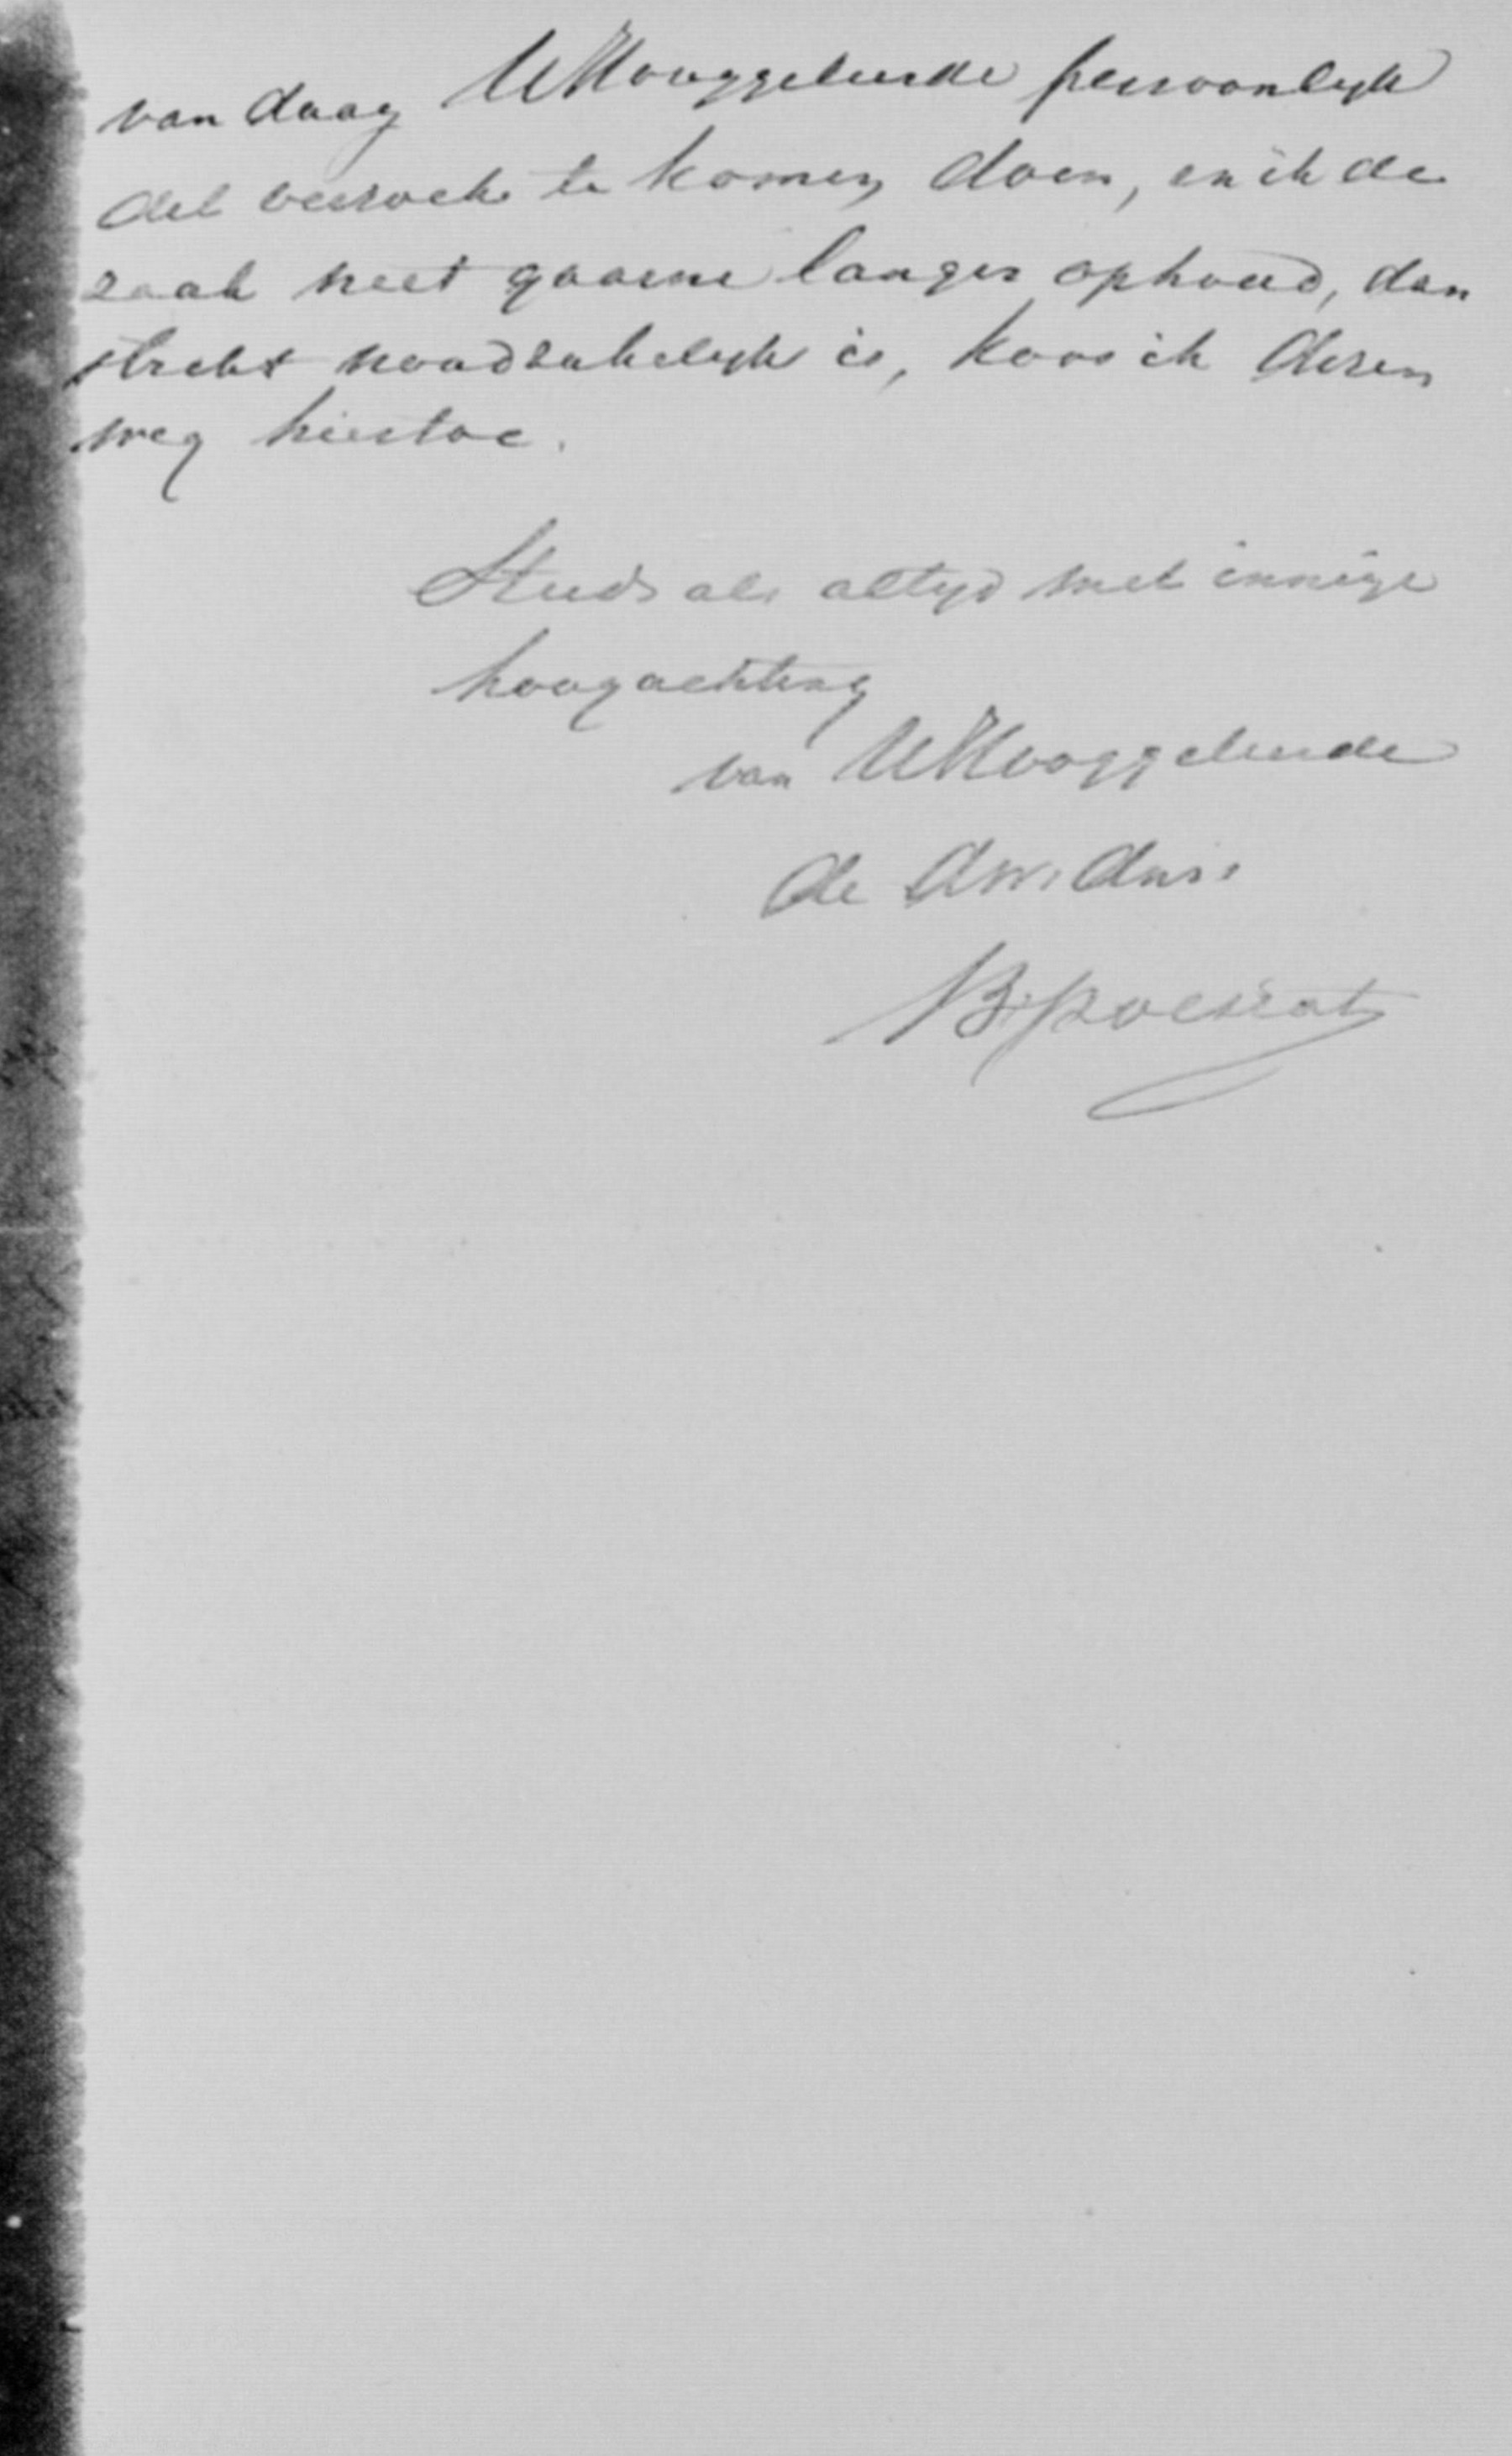 van daag UHooggeleerde persoonlyk
dit verzoek te komen doen, en ik de
zaak niet gaarne langer ophoud, dan
strekt noodzakelyk is, koos ik dezen
weg hiertoe.
Steeds als altyd met innige
hoogachting
van UHooggeleerde
de dw. dnr.